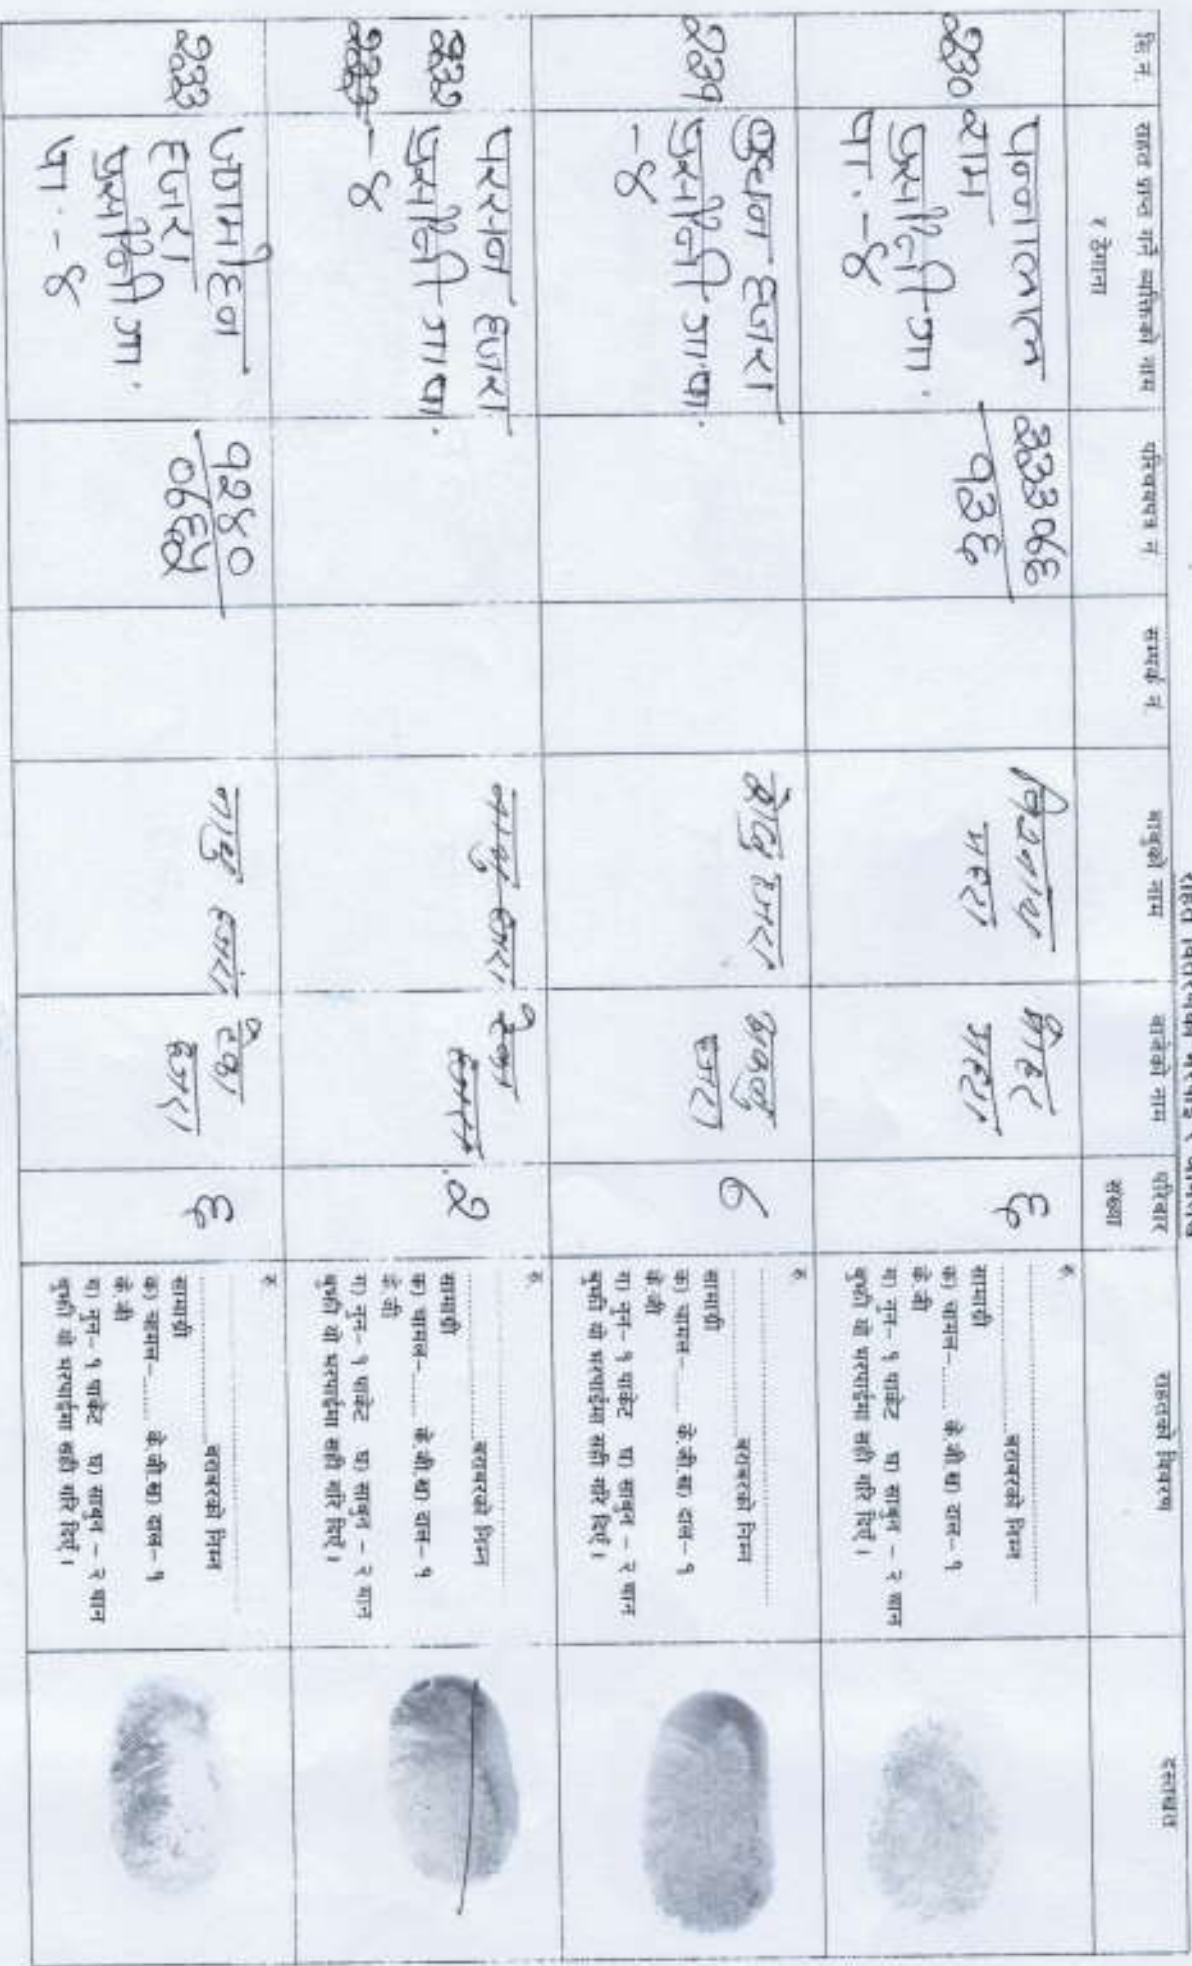 राहत वितरणको भरपाई र
सि.नं.
राहत प्राप्त गर्ने व्यक्तिको नाम
र ठेगाना
परिचयपत्र नं
सम्पर्क नं.
बाबुको नाम
बाजेको नाम
परिवार
संख्या
राहतको विवरण
दस्तखत
२३०
पन्नालाल
राम
प्रसौनी गा.
पा. -४
३३३०६६
१३६
विश्वनाथ
६
रु.
बराबरको निम्न
सामाग्री
क) चामल-...... के.जी.ख) दाल- १
के.जी
ग) नुन- १ पाकेट घ) साबुन - २ थान
बुझी यो भरपाईमा सही गरि दिएँ ।
२३१
बुधन हजरा
प्रसौनी गा.पा.
-४
हजरा
हजरा
७
रु.
बराबरको निम्न
सामाग्री
क) चामल-...... के.जी.ख) दाल- १
के.जी
ग) नुन- १ पाकेट घ) साबुन - २ थान
बुझी यो भरपाईमा सही गरि दिएँ ।
२३२
परसन हजरा
प्रसौनी गा.पा.
-४
हजरा
२
रु.
बराबरको निम्न
सामाग्री
क) चामल-...... के.जी.ख) दाल- १
के.जी
ग) नुन- १ पाकेट घ) साबुन - २ थान
बुझी यो भरपाईमा सही गरि दिएँ ।
२३३
जगमोहन
हजरा
प्रसौनी गा.
पा. -४
१२४०
०६६५
हजरा
हजरा
६
रु.
बराबरको निम्न
सामाग्री
क) चामल-...... के.जी.ख) दाल- १
के.जी
ग) नुन- १ पाकेट घ) साबुन - २ थान
बुझी यो भरपाईमा सही गरि दिएँ ।